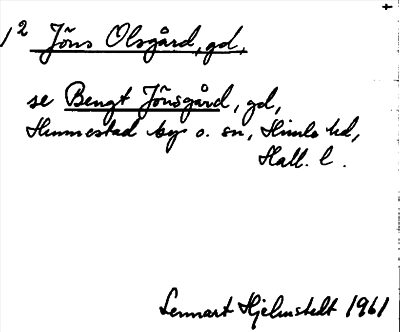 1² Jöns Olsgård, gd,
se Bengt Jönsgård, gd,
Hunnestad by o. sn, Himle hd,
Hall. l.
Lennart Hjelmstedt 1961